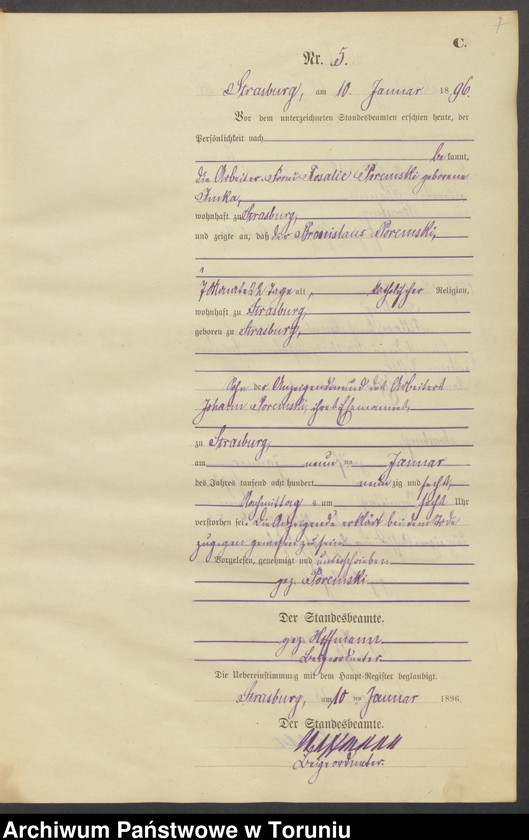 C.
Nr. 5.
Strasburg, am 10. Januar 1896.
Vor dem unterzeichneten Standesbeamten erschien heute, der
Persönlichkeit nach
be kannt,
die Arbeiter Frau Rosalie Poremski geborene
wohnhaft zu Strasburg,
und zeigte an, daß der Bronislaus Poremski,
7 Monate 22 Tage alt, katholischer Religion,
wohnhaft zu Strasburg,
geboren zu Strasburg,
Sohn der Anzeigenden und des Arbeiters
Johann Poremski, ihres Ehemannes,
zu Strasburg,
am neun ten Januar
des Jahres tausend acht hundert neun zig und sechs
Nachmittag s um sechs Uhr
verstorben sei. Die Anzeigende erklärt bei dem Tode
zugegen gewesen zu sein.
Vorgelesen, genehmigt und unterschrieben
gez. Poremski
Der Standesbeamte.
gez. Hoffmann.
Beigeordneter.
Die Uebereinstimmung mit dem Haupt-Register beglaubigt.
Strasburg, am 10 ten Januar 1896.
Der Standesbeamte.
Beigeordneter.
Archiwum Państwowe w Toruniu